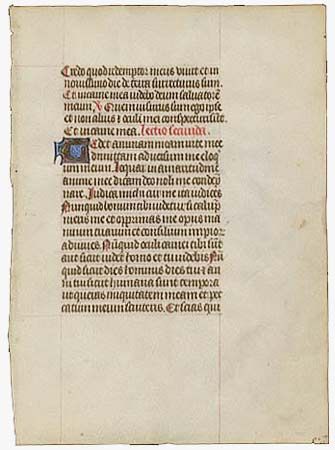 Credo quod redemptor meus vivit et in
novissimo die de terra surrecturus sum.
Et in carne mea videbo deum salvatorē
meum. V Quem visurus sum ego ipse
et non alius et oculi mei conspecturi sūt.
Et in carne mea. Lectio secunda.
Tedet animam meam vite mee
dimittam adversum me eloq
uium meum. loquar in amaritudine
anime mee dicam deo noli me condep
nare. Indica michi cur me ita iudices
Nunquid bonum tibi videtur si calup
nieris me et opprimas me opus ma
nuum tuarum et consilium impior
adiuves. Nūquid oculi carnei tibi sūt
aut sicut videt homo et tu videbis Nū
quid sicut dies hominis dies tui et an
ni tui sicut humana sunt tempora
ut queras iniquitatem meam et pec
catum meum scruteris. Et scias qui